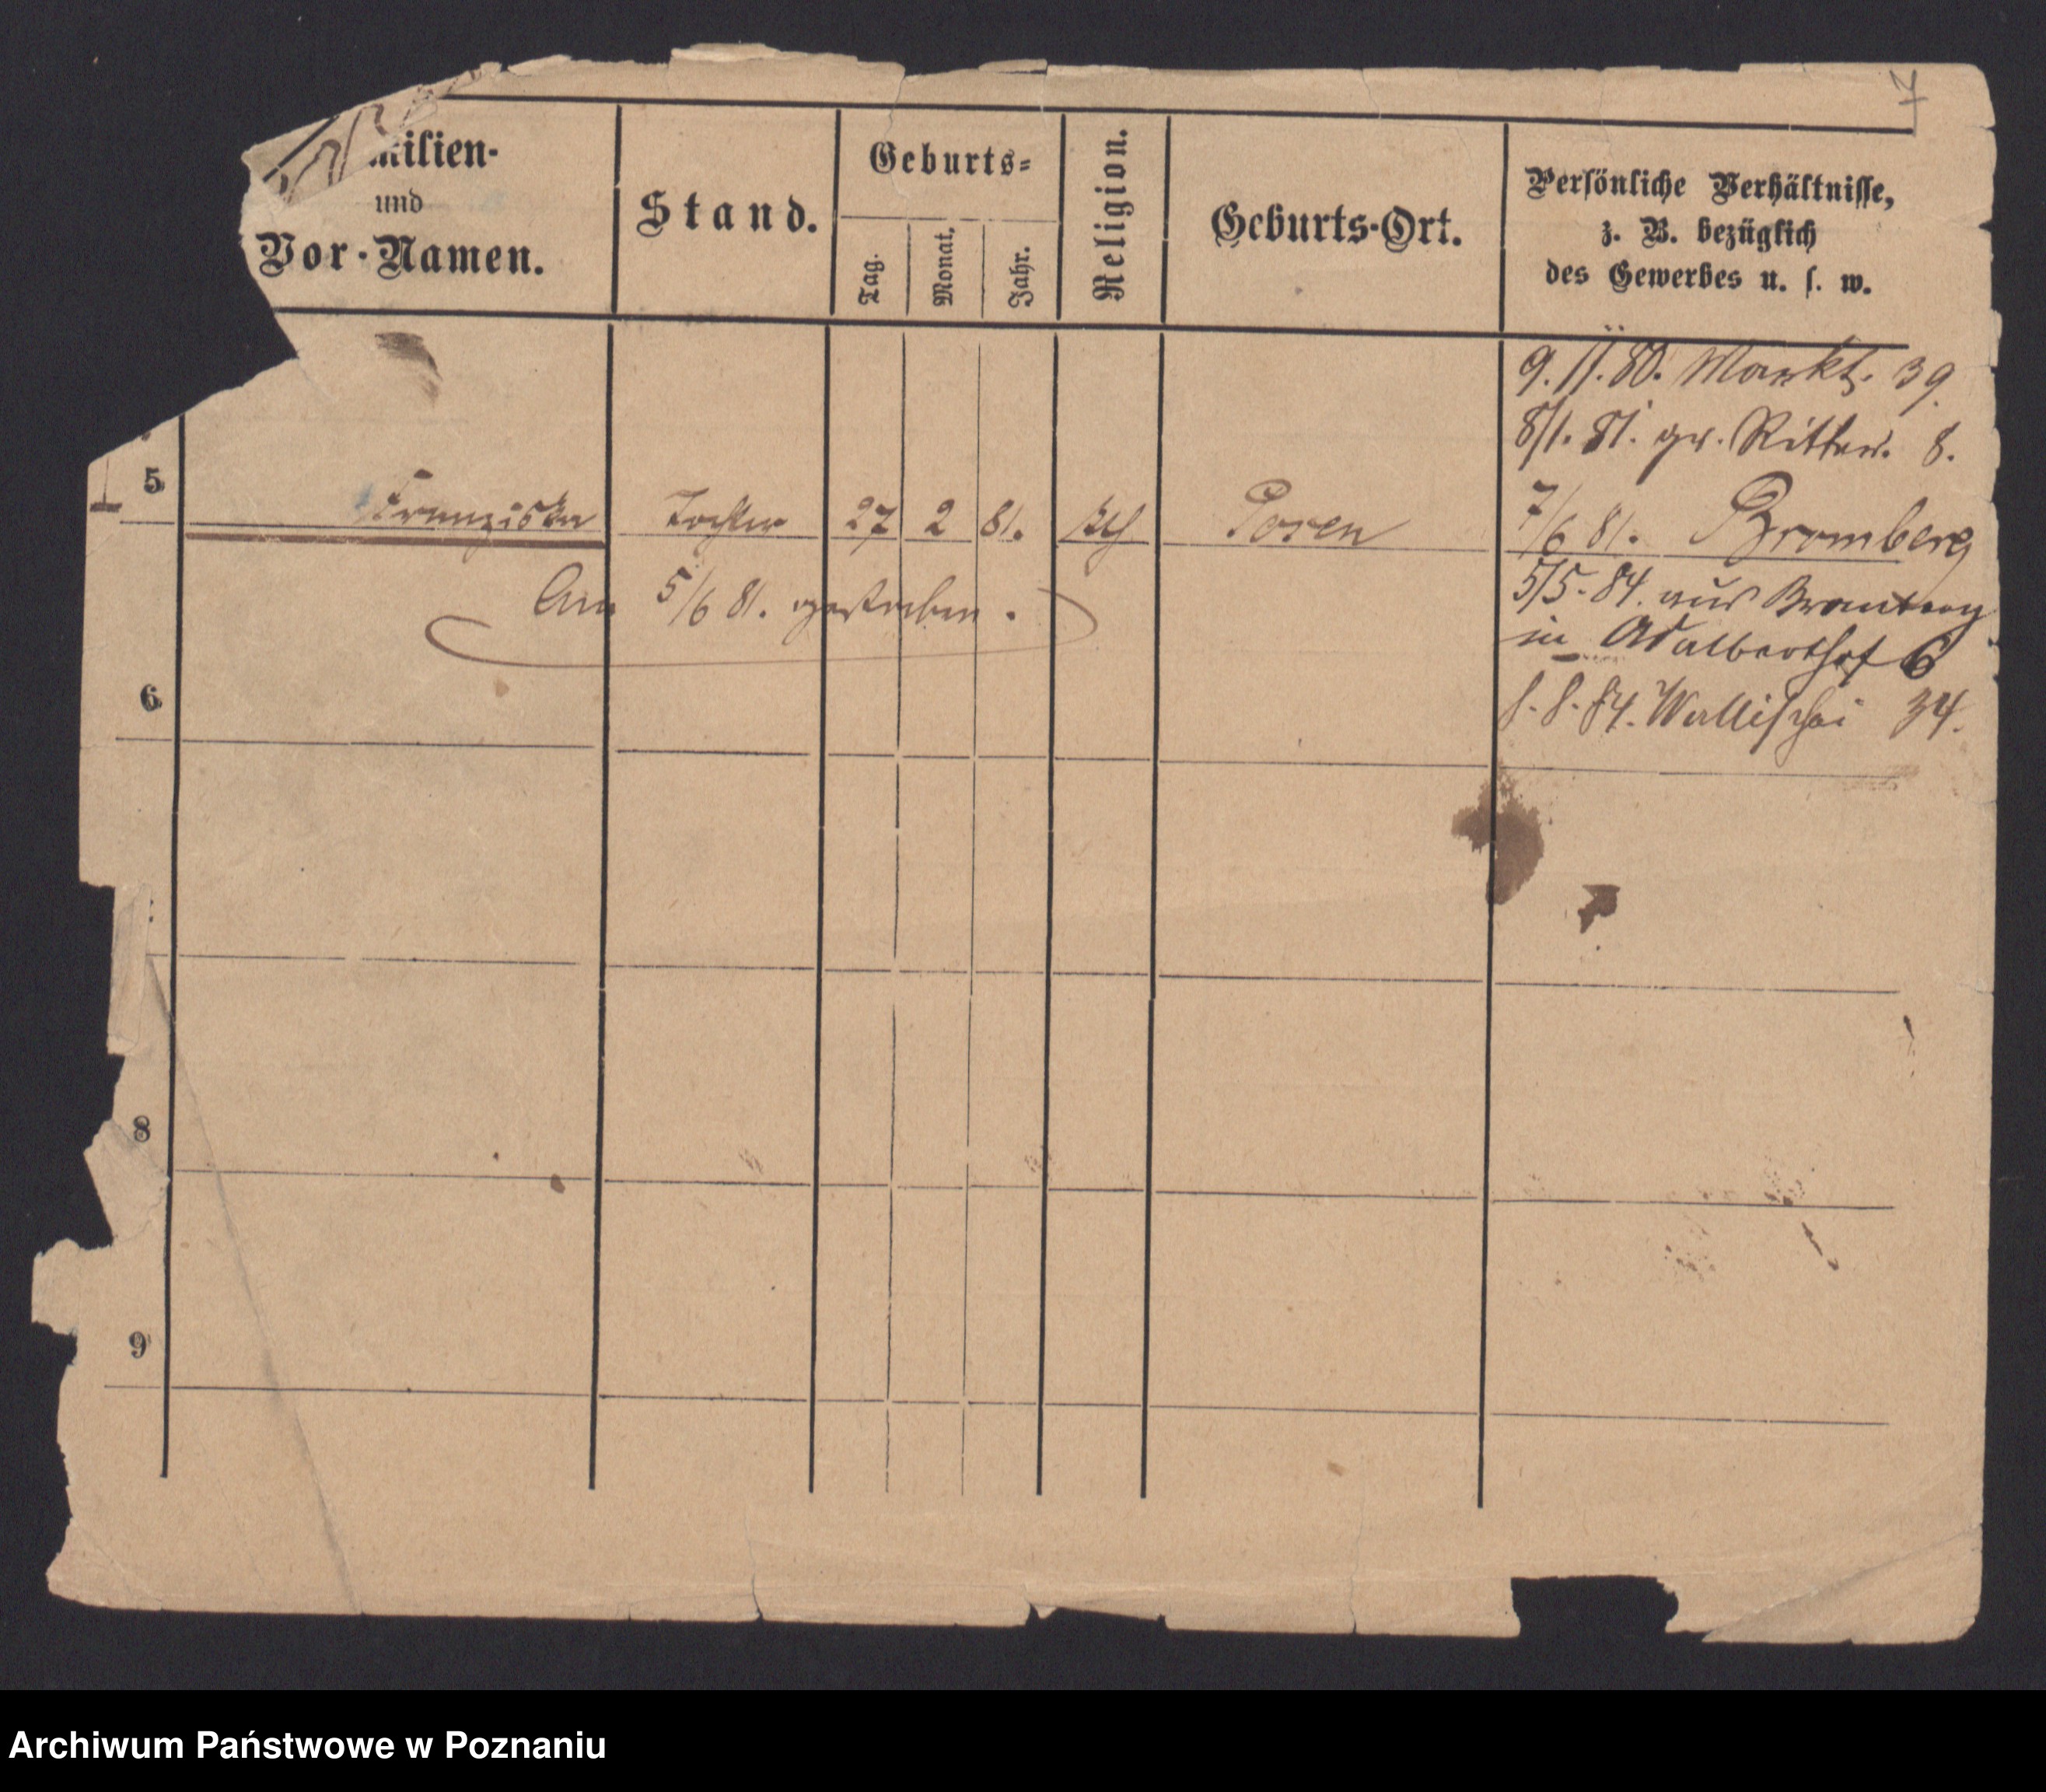 7
milien-
und
Vor-Namen.
Stand.
Geburts-
Tag.
Monat.
Jahr.
Religion.
Geburts-Ort.
Persönliche Verhältnisse,
z. B. bezüglich
des Gewerbes u. s. w.
9. 11. 80. Markt. 39
8/1. 81. gr. Ritter. 8.
5 Franziska Tochter 27 2 81. Posen 7/6 81. Bromberg
5/6 81. gestorben.
5/5. 84. aus Bromberg
in Adalberthof 6
6
8. 8. 84. Wallischei 34.
8
9
Archiwum Państwowe w Poznaniu